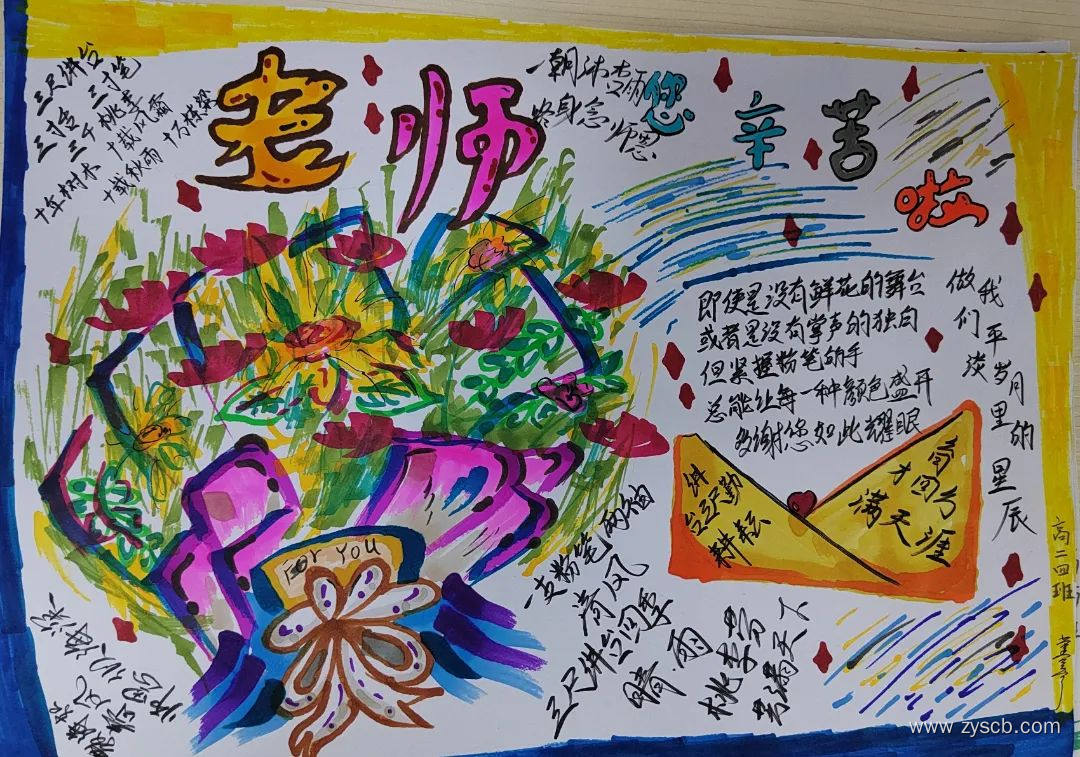 老师您辛苦啦
三尺讲台
三寸笔
三寸舌
三千桃李
十载风霜
十年树木
十载秋雨
十万栋梁
一朝沐杏雨
终身念师恩
即使是没有鲜花的舞台
或者是没有掌声的独白
但紧握粉笔的手
总能让每一种颜色盛开
多谢您如此耀眼
做我们平淡岁月里的星辰
讲台还勤耕耘
满天涯
FOR YOU
一支粉笔两袖清风
三尺讲台四季晴雨
桃李
天下
高二四班
www.zyscb.com